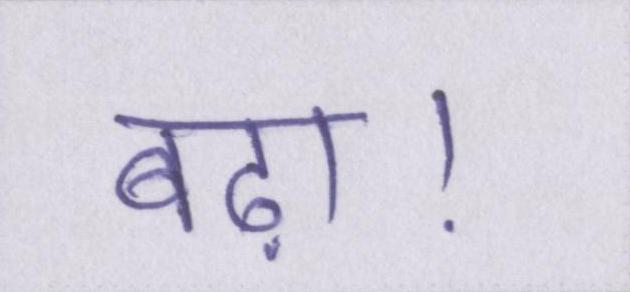 बढ़ा!